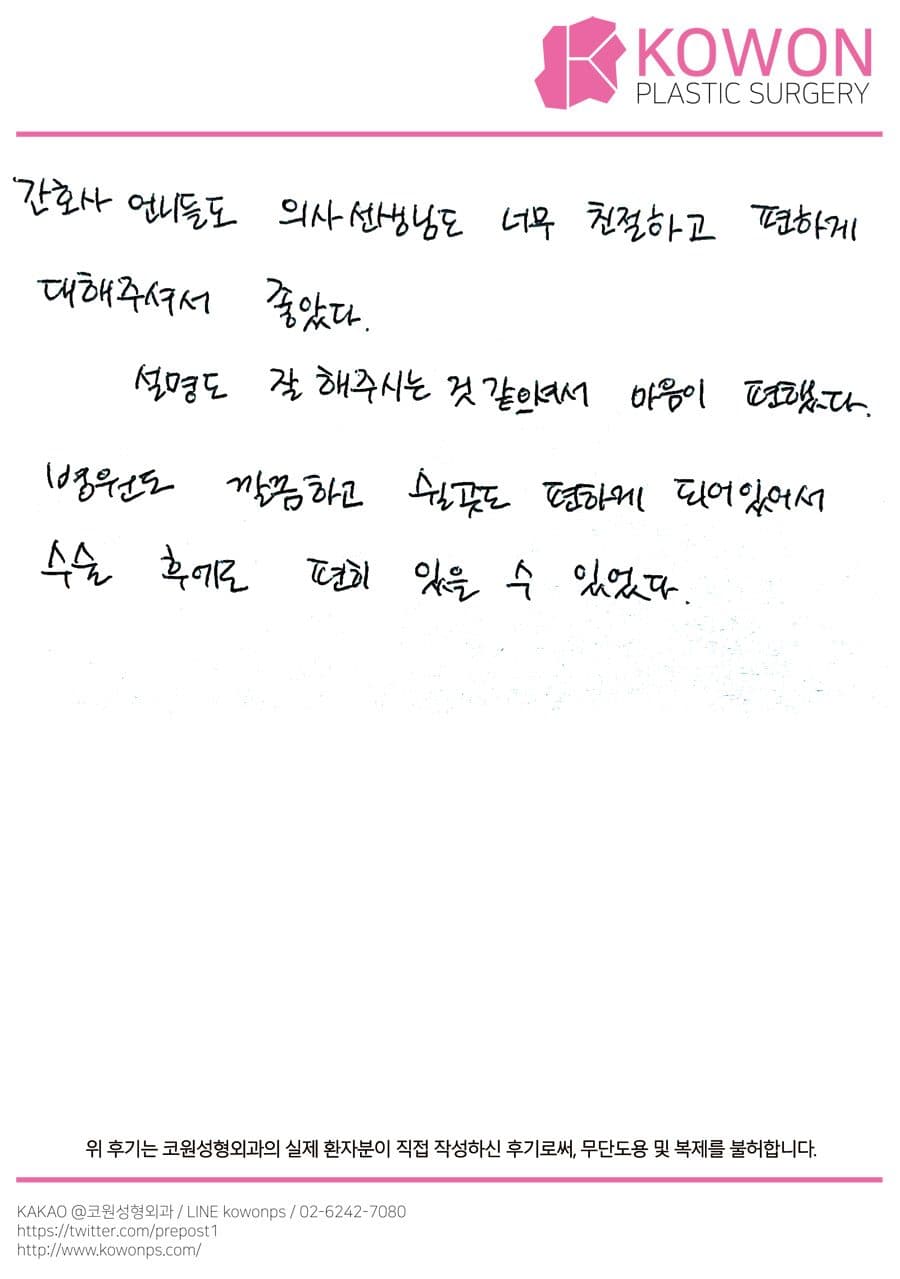 KOWON
PLASTIC SURGERY
간호사 언니들도 의사선생님도 너무 친절하고 편하게
대해주셔서 좋았다.
설명도 잘 해주시는 것 같으셔서 마음이 편했다.
병원도 깔끔하고 쉴곳도 편하게 되어있어서
수술 후에도 편히 있을 수 있었다.
위 후기는 코원성형외과의 실제 환자분이 직접 작성하신 후기로써, 무단도용 및 복제를 불허합니다.
KAKAO @코원성형외과 / LINE kowonps / 02-6242-7080
https://twitter.com/prepost1
http://www.kowonps.com/